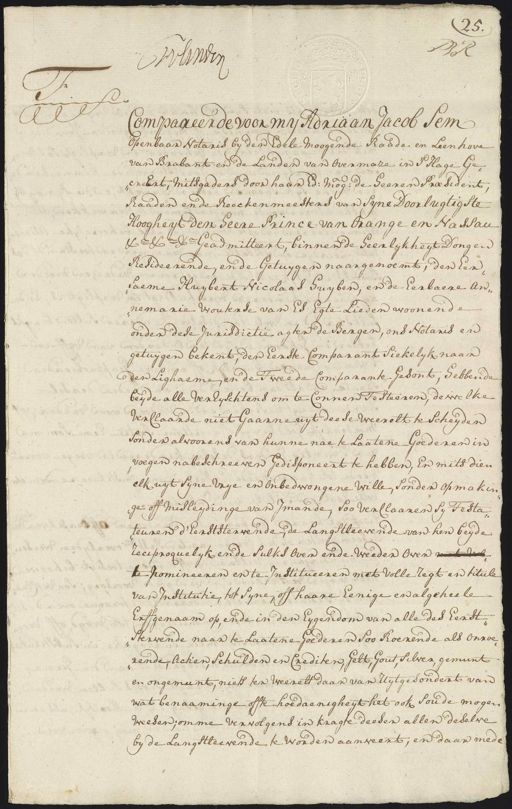 25.
Compareerde voor my Adriaan Jacob Sem
Openbaar Notaris by den Edele Moogende Raade en Leenhove
van Brabant en de Landen van Overmaze in S'Hage Ge-
creëert, Mitsgaders door haar Ed: Mog: de Heeren President,
Raaden en de Reeckenmeesters van Syne Doorlugtigste
Hoogheyt den Heere Prince van Orange en Nassau
&a &a &a Geadmitteert, binnen de Heerlykheyt Dongen
Resideerende, en de Getuygen naargenoemt, den Eer-
saeme Huybert Nicolaas Guyben, en de Eerbaere An-
nemarie Wouterse van Es Egte Lieden woonende
onder dese Jurisdictie agter de Bergen, ons Notaris en
getuygen bekent, den Eerste Comparant Siekelyk naar
den Lighaeme, en de Tweede Comparante Gesont, Hebbende
beyde alle Verdyschtens om te Connen Testeeren, dewelke
Verclaarde niet Gaarne uyt deese Weerelt te Scheyden
Sonder alvoorens van hunne nae te Laatene Goederen in
voegen nabeschreeven Gedisponeert te hebben, En mits dien
elk uyt Syne Vrye en Onbedwongene Wille, Sonder Opmakin-
ge off Misleydinge van Jmande, Soo Verclaaren Sy Testa-
teuren d'Eerststervende, de Langstleevende van hen beyde
reciproquelyk ende Sulks Over ende Weeder Over
te Nomineeren en te Institueeren met Volle Regt en titule
van Institutie, tot Syne, off haare Eenige en algeheele
Erffgenaam op, ende in den Eygendom van alle des Eerst
Stervende naar te Laatene Goederen Soo Roerende als Onroe-
rende, Acten Schulden en Crediten, Gelt, Gout Silver, gemunt
en ongemunt, niets ter Weerelt daar van Uytgesondert van
wat benaaminge ofte hoedaenigheyt het ook Soude mogen
Weesen, omme Vervolgens in kragte deeser allen deselve
by de Langstleevende te Worden aanveert, en daar mede